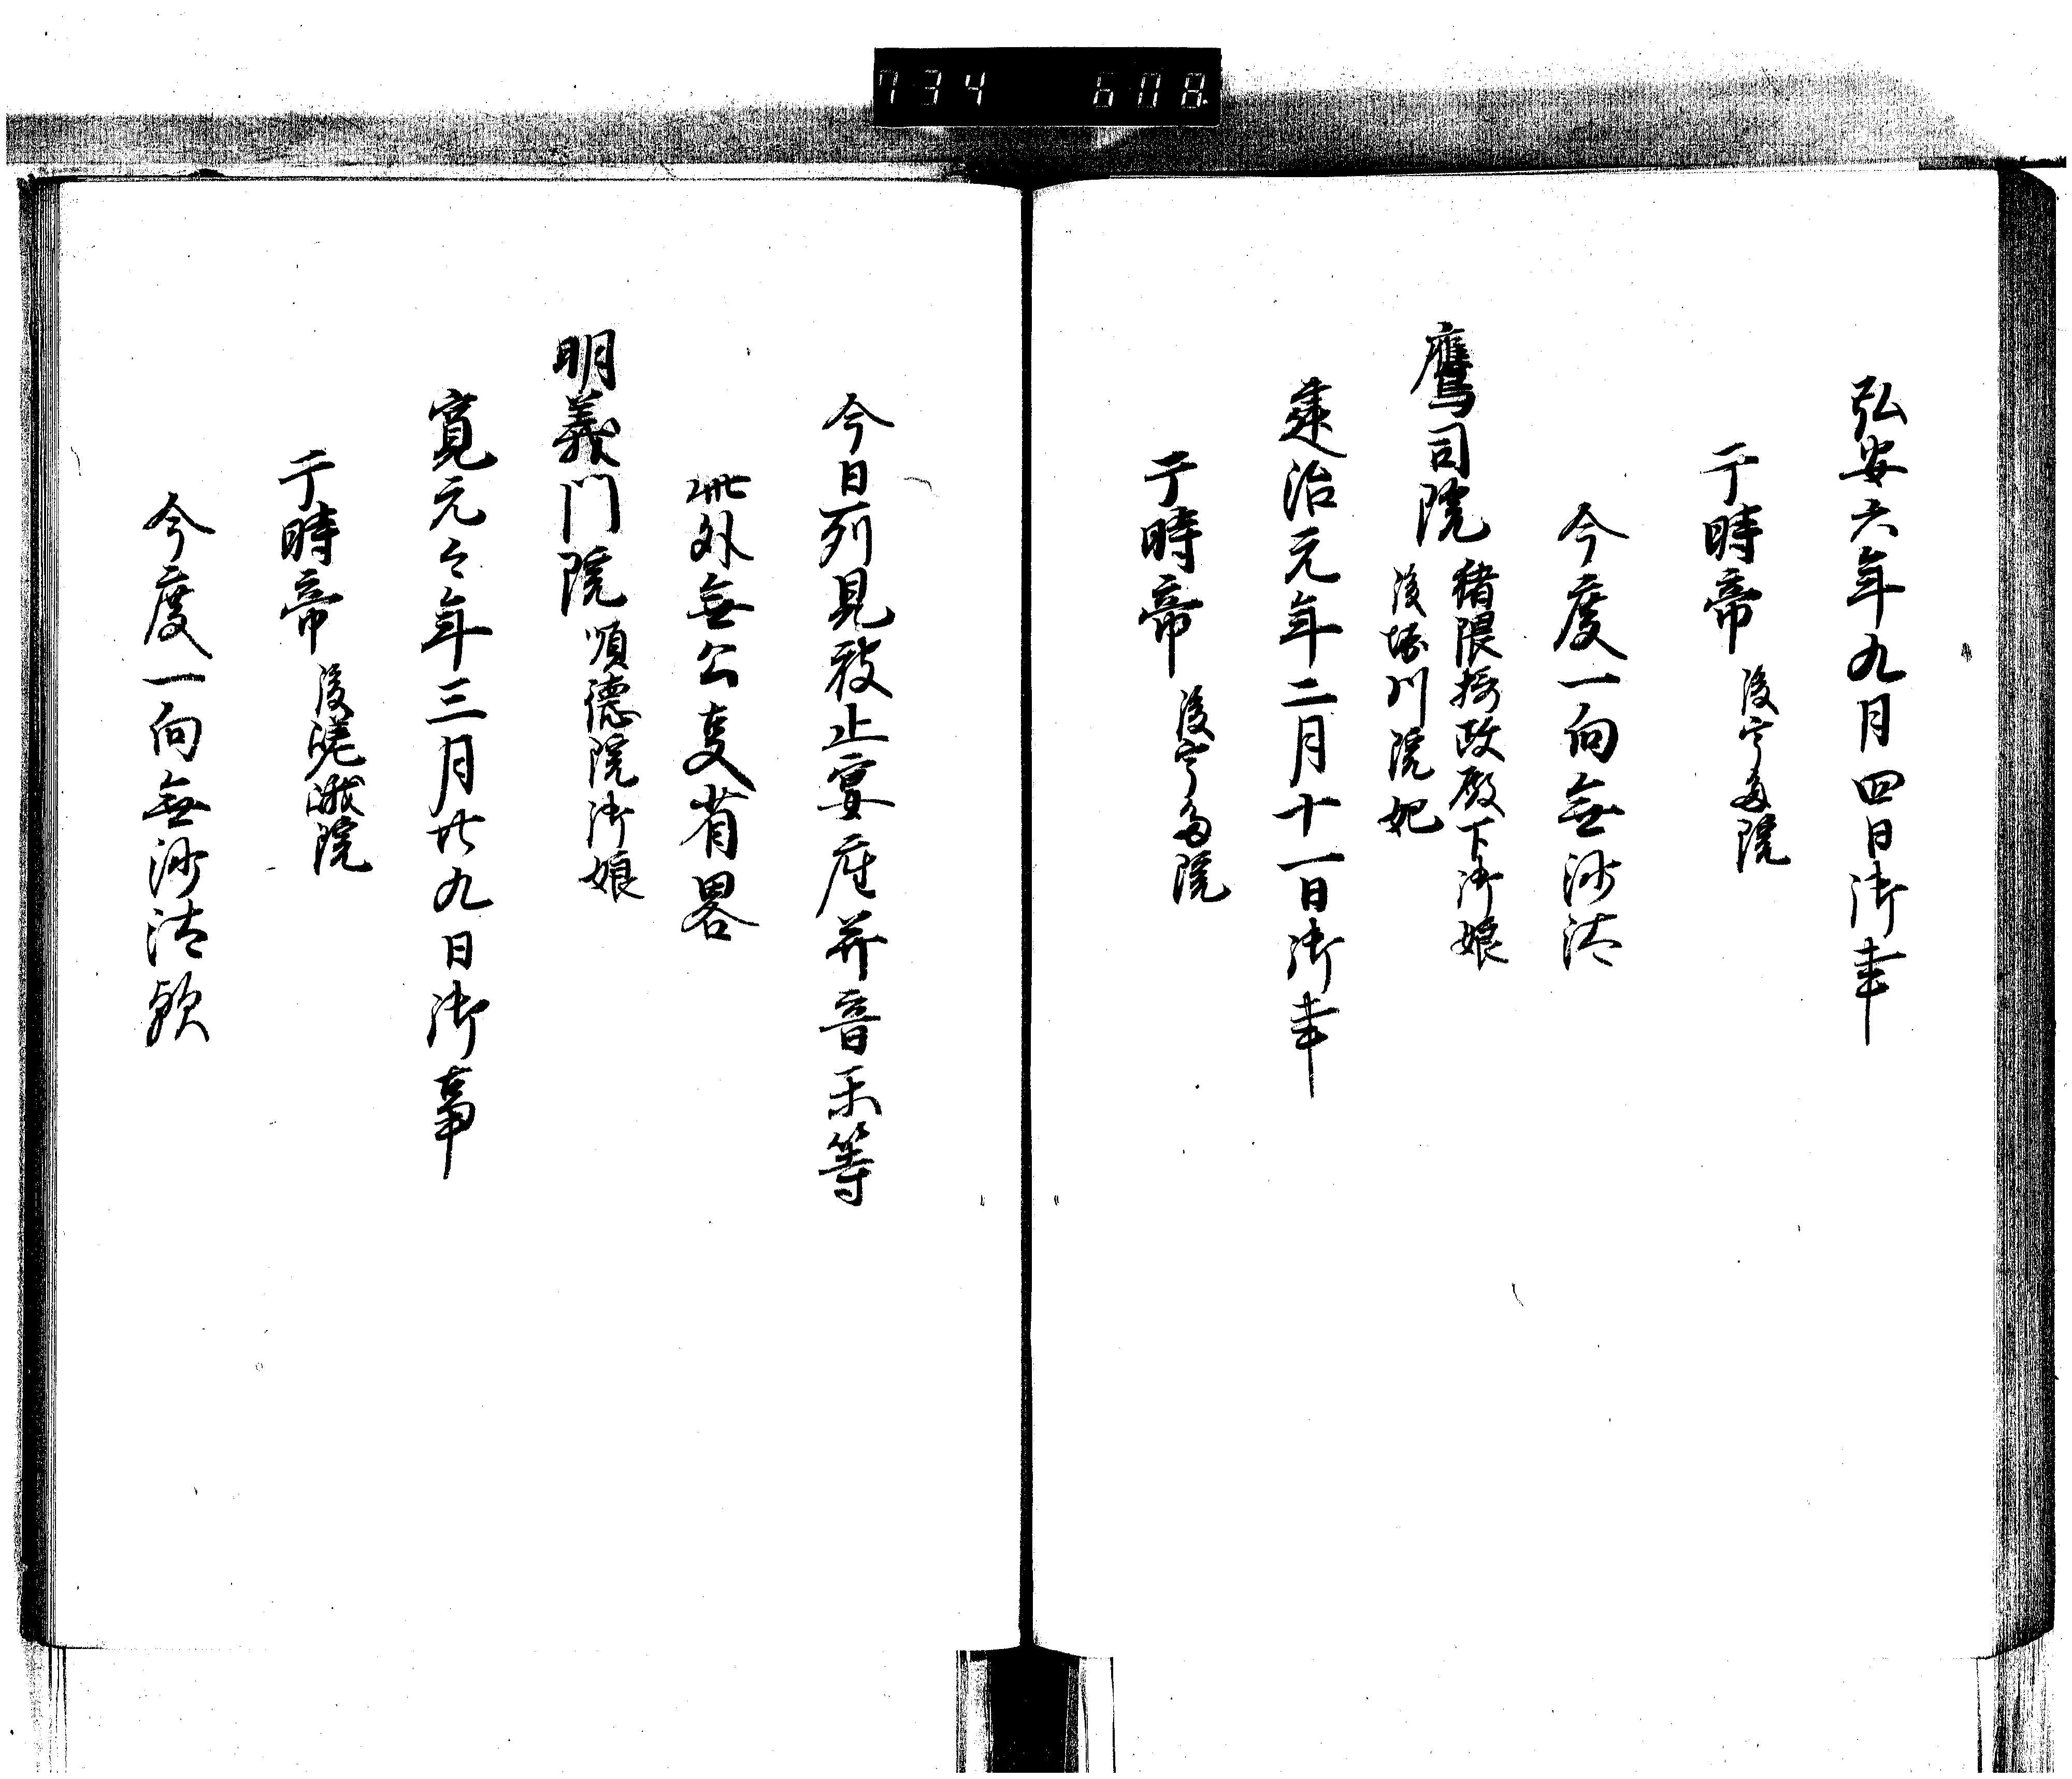 734 608
弘安六年九月四日御事
于時帝 後宇多院
今度一向無沙汰
鷹司院 猪隈摂政殿下御娘
後堀川院妃
建治元年二月十一日御事
于時帝 後宇多院
今日列見被止宴座并音楽等
此外無公事省略
明義門院 順徳院御娘
寛元々年三月廿九日御事
于時帝 後嵯峨院
今度一向無沙汰歟